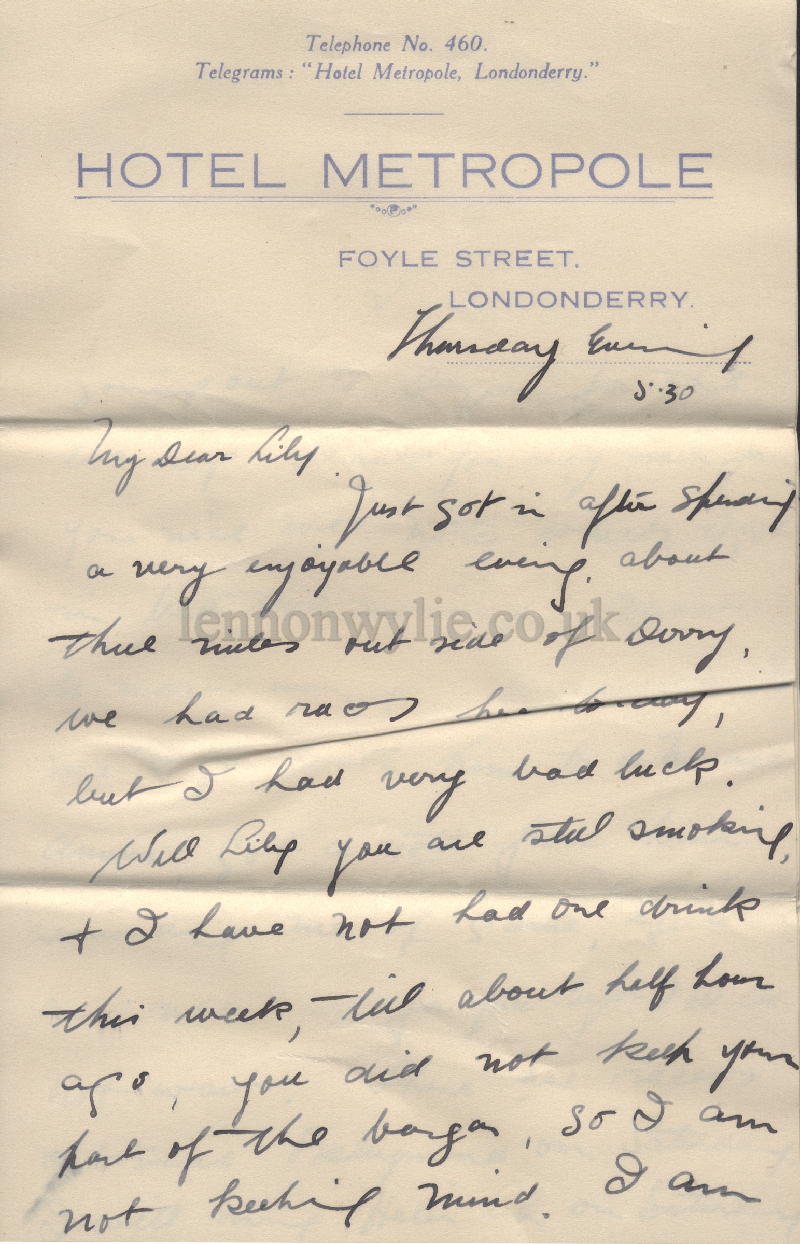 Telephone No. 460.
Telegrams: "Hotel Metropole, Londonderry."
HOTEL METROPOLE
FOYLE STREET.
LONDONDERRY.
Thursday Evening
5.30
My Dear Lily.
Just got in after spending
a very enjoyable evening, about
three miles out side of Derry,
we had races here to-day,
but I had very bad luck.
Well Lily you are still smoking,
+ I have not had one drink
this week, till about half hour
ago, you did not keep your
part of the bargan, so I am
not keeping mind. I am
lennonwylie.co.uk